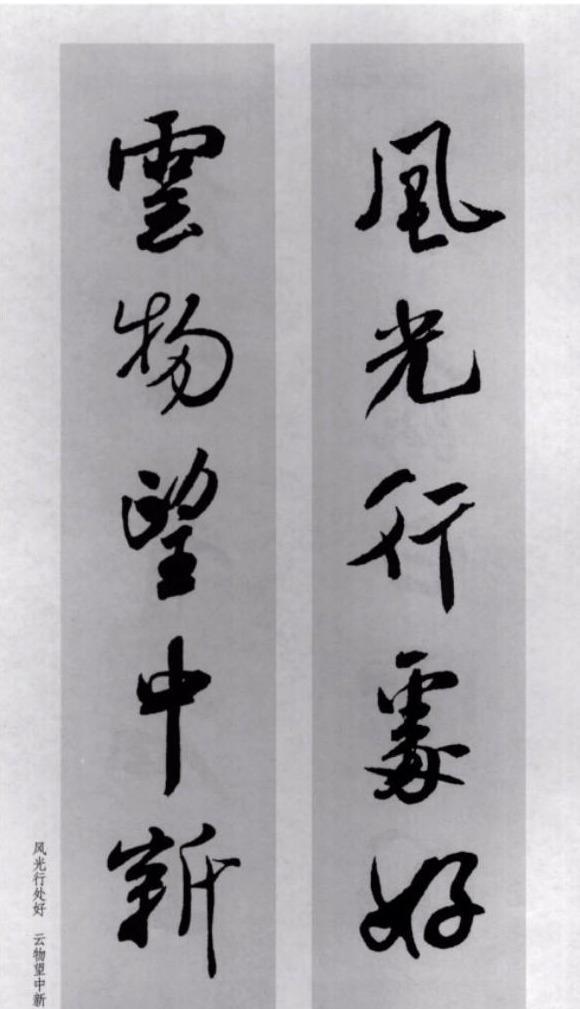 風光行處好
雲物望中新
风光行处好 云物望中新